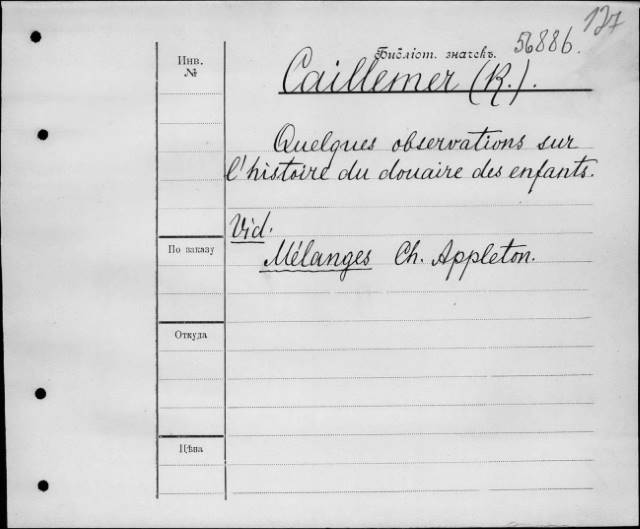 127
Библіот. значекъ. 56886.
Инв. №
Caillemer (R.).
Quelques observations sur
l'histoire du douaire des enfants.
Vid.
По заказу
Mélanges Ch. Appleton.
Откуда
Цѣна